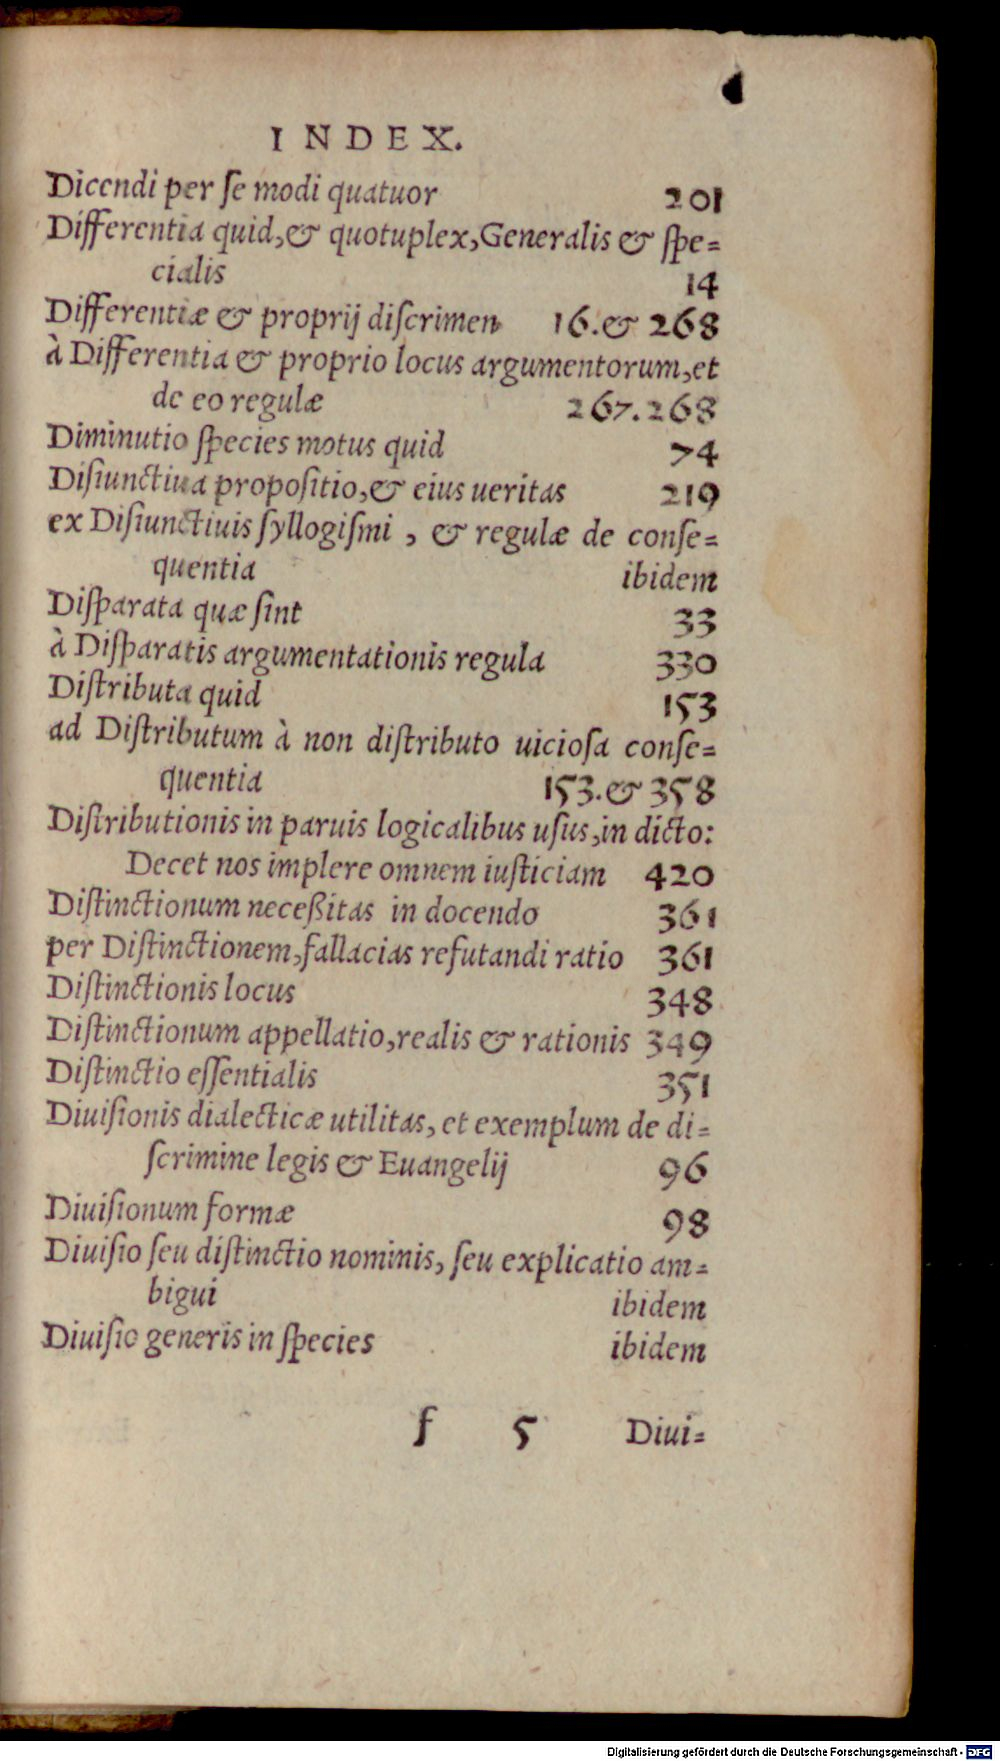 INDEX.
Dicendi per ſe modi quatuor 201
Differentia quid,& quotuplex,Generalis & ſpe=
cialis 14
Differentiæ & proprij diſcrimen 16.& 268
à Differentia & proprio locus argumentorum,et
de eo regulæ 267.268
Diminutio ſpecies motus quid 74
Diſiunctiua propoſitio,& eius ueritas 219
ex Diſiunctiuis ſyllogiſmi , & regulæ de conſe=
quentia ibidem
Diſparata quæ ſint 33
à Diſparatis argumentationis regula 330
Diſtributa quid 153
ad Diſtributum à non diſtributo uicioſa conſe=
quentia 153.& 358
Diſtributionis in paruis logicalibus uſus,in dicto:
Decet nos implere omnem iuſticiam 420
Diſtinctionum neceßitas in docendo 361
per Diſtinctionem,fallacias refutandi ratio 361
Diſtinctionis locus 348
Diſtinctionum appellatio,realis & rationis 349
Diſtinctio eſſentialis 351
Diuiſionis dialecticæ utilitas, et exemplum de di=
ſcrimine legis & Euangelij 96
Diuiſionum formæ 98
Diuiſio ſeu diſtinctio nominis, ſeu explicatio am=
bigui ibidem
Diuiſio generis in ſpecies ibidem
f 5 Diui=
Digitalisierung gefördert durch die Deutsche Forschungsgemeinschaft - DFG